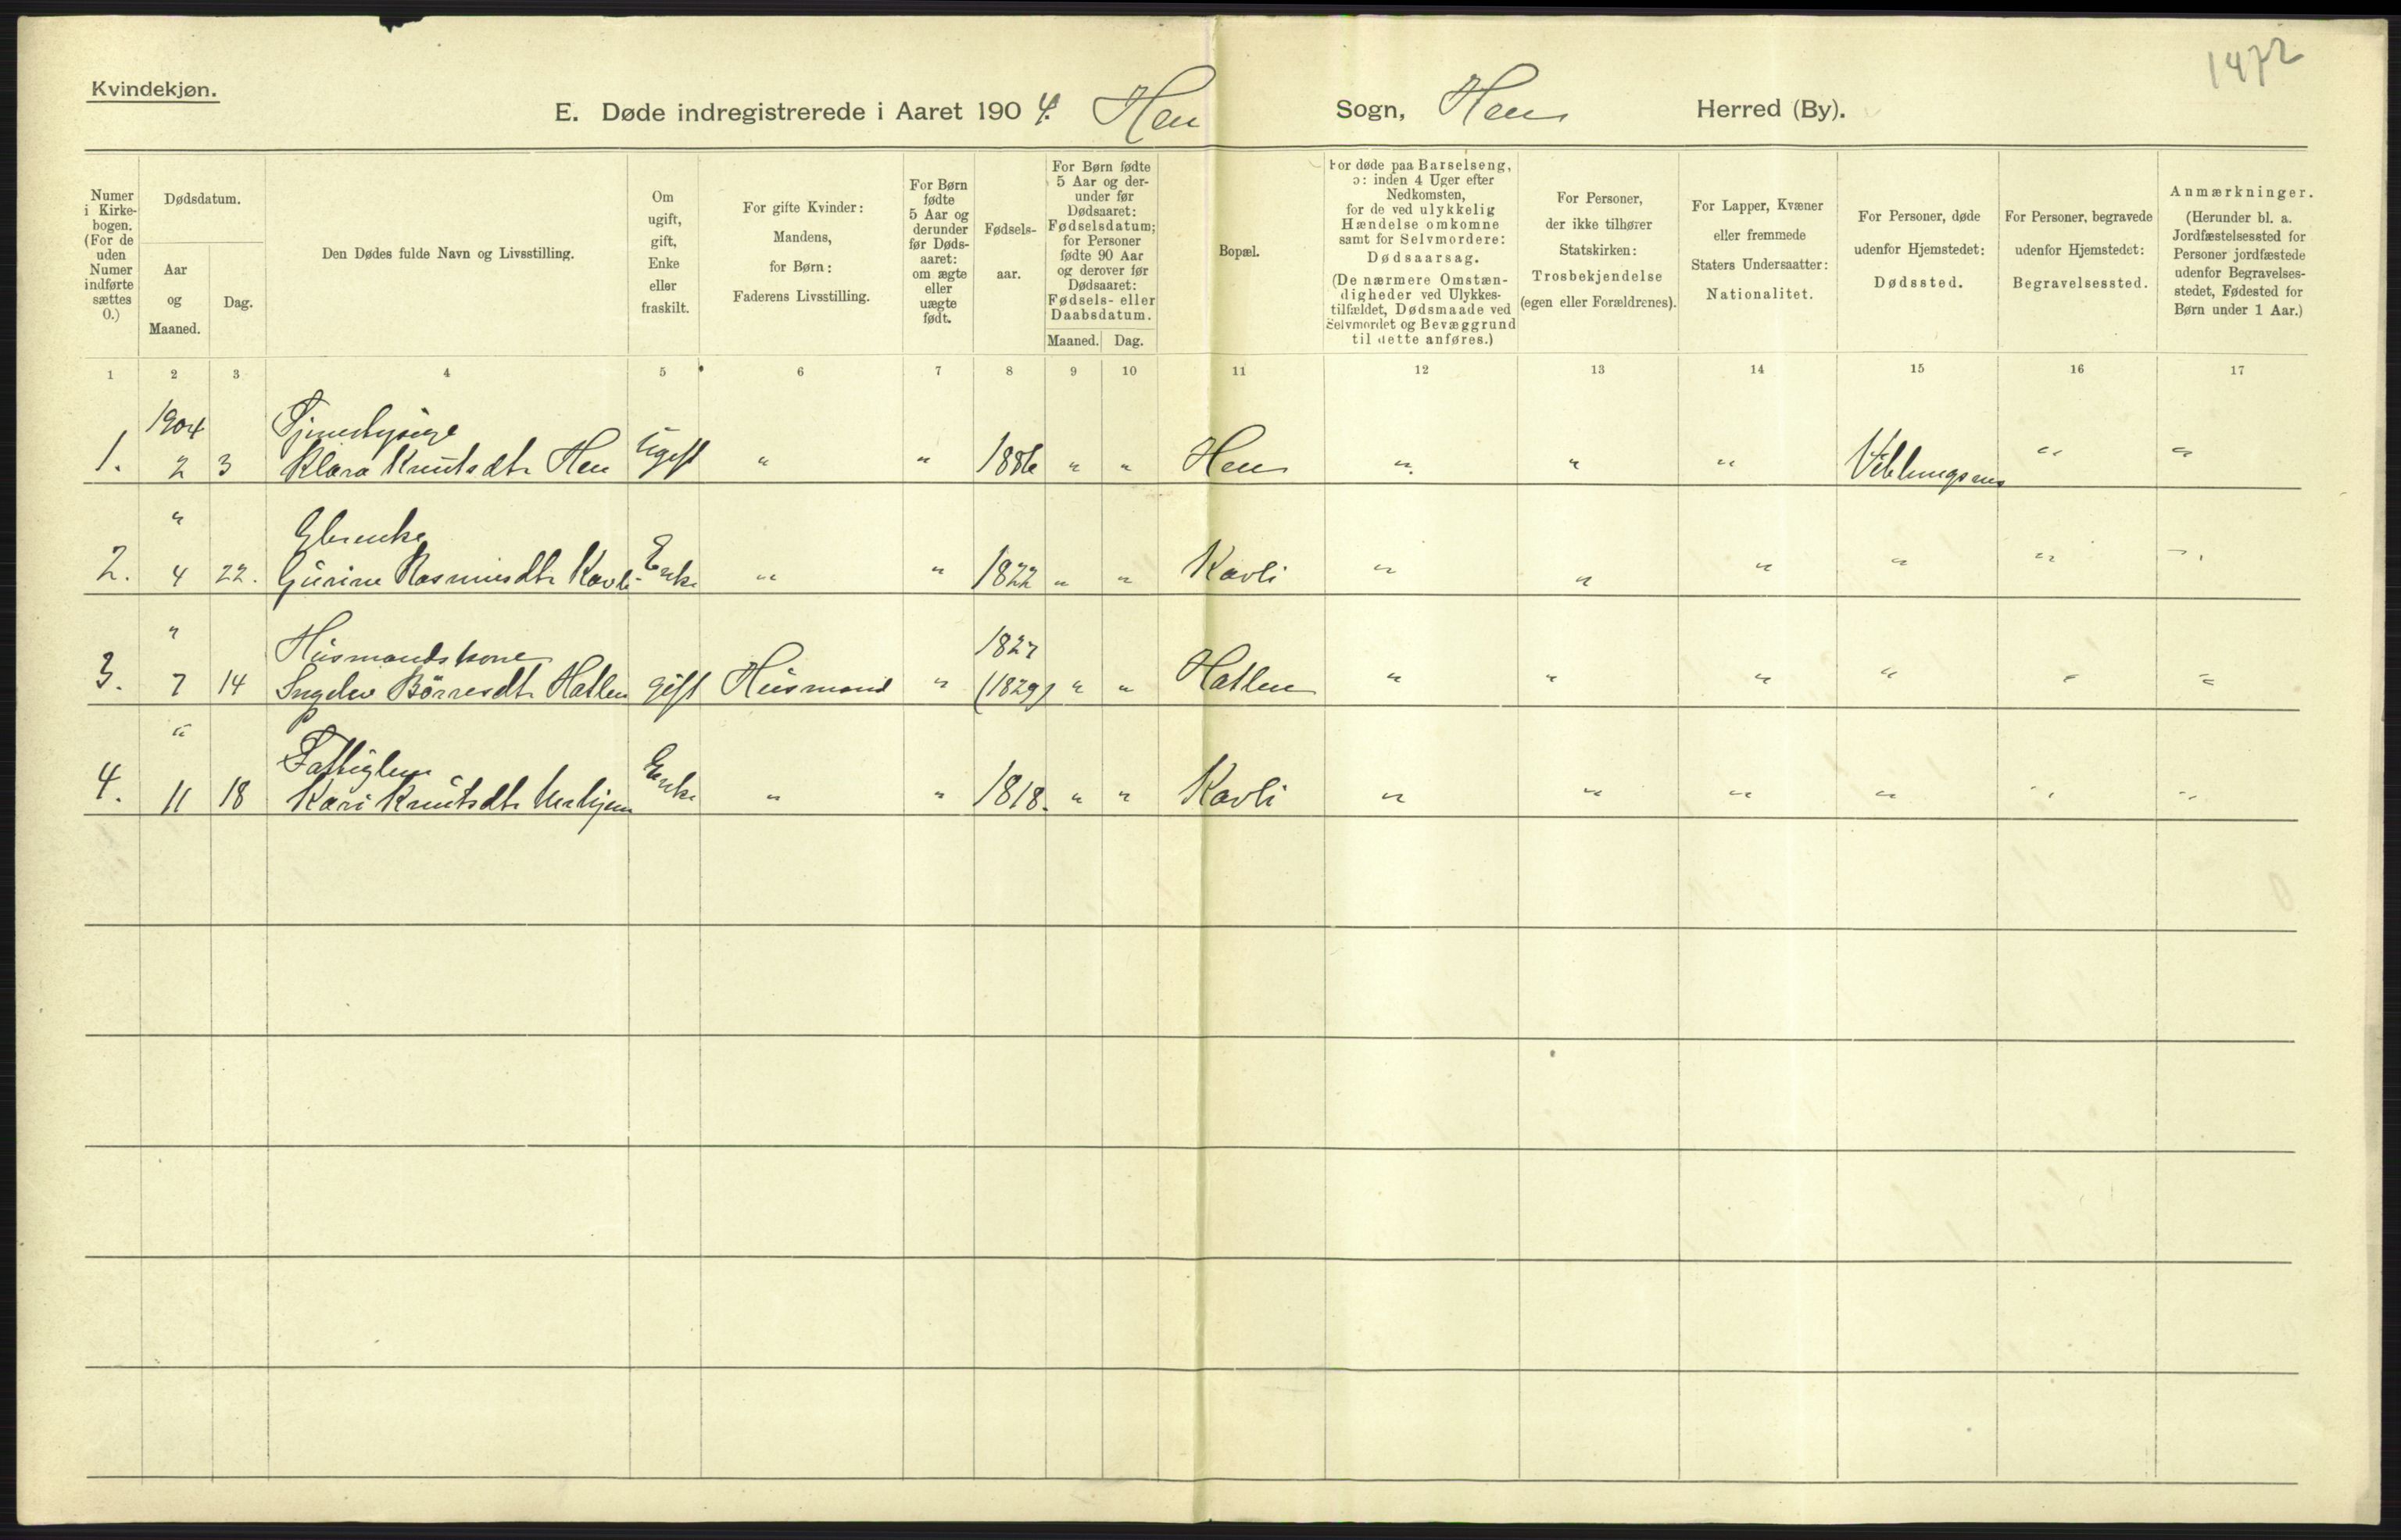 1472
Kvindekjøn.
E. Døde indregistrerede i Aaret 1904. Hen Sogn, Hen Herred (By).
Numer i Kirke- bogen. (For de uden Numer indførte sættes 0.)
Dødsdatum.
Aar og Maaned.
Dag.
Den Dødes fulde Navn og Livsstilling.
Om ugift, gift, Enke eller fraskilt.
For gifte Kvinder: Mandens, for Børn: Faderens Livsstilling.
For Børn fødte 5 Aar og derunder før Døds- aaret: om ægte eller uægte født.
Fødsels- aar.
For Børn fødte 5 Aar og der- under før Dødsaaret: Fødselsdatum; for Personer fødte 90 Aar og derover før Dødsaaret: Fødsels- eller Daabsdatum.
Maaned. Dag.
Bopæl.
For døde paa Barselseng, ɔ: inden 4 Uger efter Nedkomsten, for de ved ulykkelig Hændelse omkomne samt for Selvmordere: Dødsaarsag.
(De nærmere Omstæn- digheder ved Ulykkes- tilfældet, Dødsmaade ved Selvmordet og Bevæggrund til dette anføres.)
For Personer, der ikke tilhører Statskirken: Trosbekjendelse (egen eller Forældrenes).
For Lapper, Kvæner eller fremmede Staters Undersaatter: Nationalitet.
For Personer, døde udenfor Hjemstedet: Dødssted.
For Personer, begravede udenfor Hjemstedet: Begravelsessted.
Anmærkninger.
(Herunder bl. a. Jordfæstelsessted for Personer jordfæstede udenfor Begravelses- stedet, Fødested for Børn under 1 Aar.)
1 2 3 4 5 6 7 8 9 10 11 12 13 14 15 16 17
1904 Tjenestepige
1. 2 3 Klara Knutsdtr Hen ugift " " 1886 " " Hen " " " Veblungsnes " "
" Gbrenke
2. 4 22. Gurine Rasmusdtr Kavli Enke " " 1822 " " Kavli " " " " " "
" Husmandskone 1827
3. 7 14 Ingelev Börresdtr Hatlen gift Husmand " (1829) " " Hatlen " " " " " "
" Fattiglem
4. 11 18 Kari Knutsdtr Enke " " 1818. " " Kavli " " " " " "